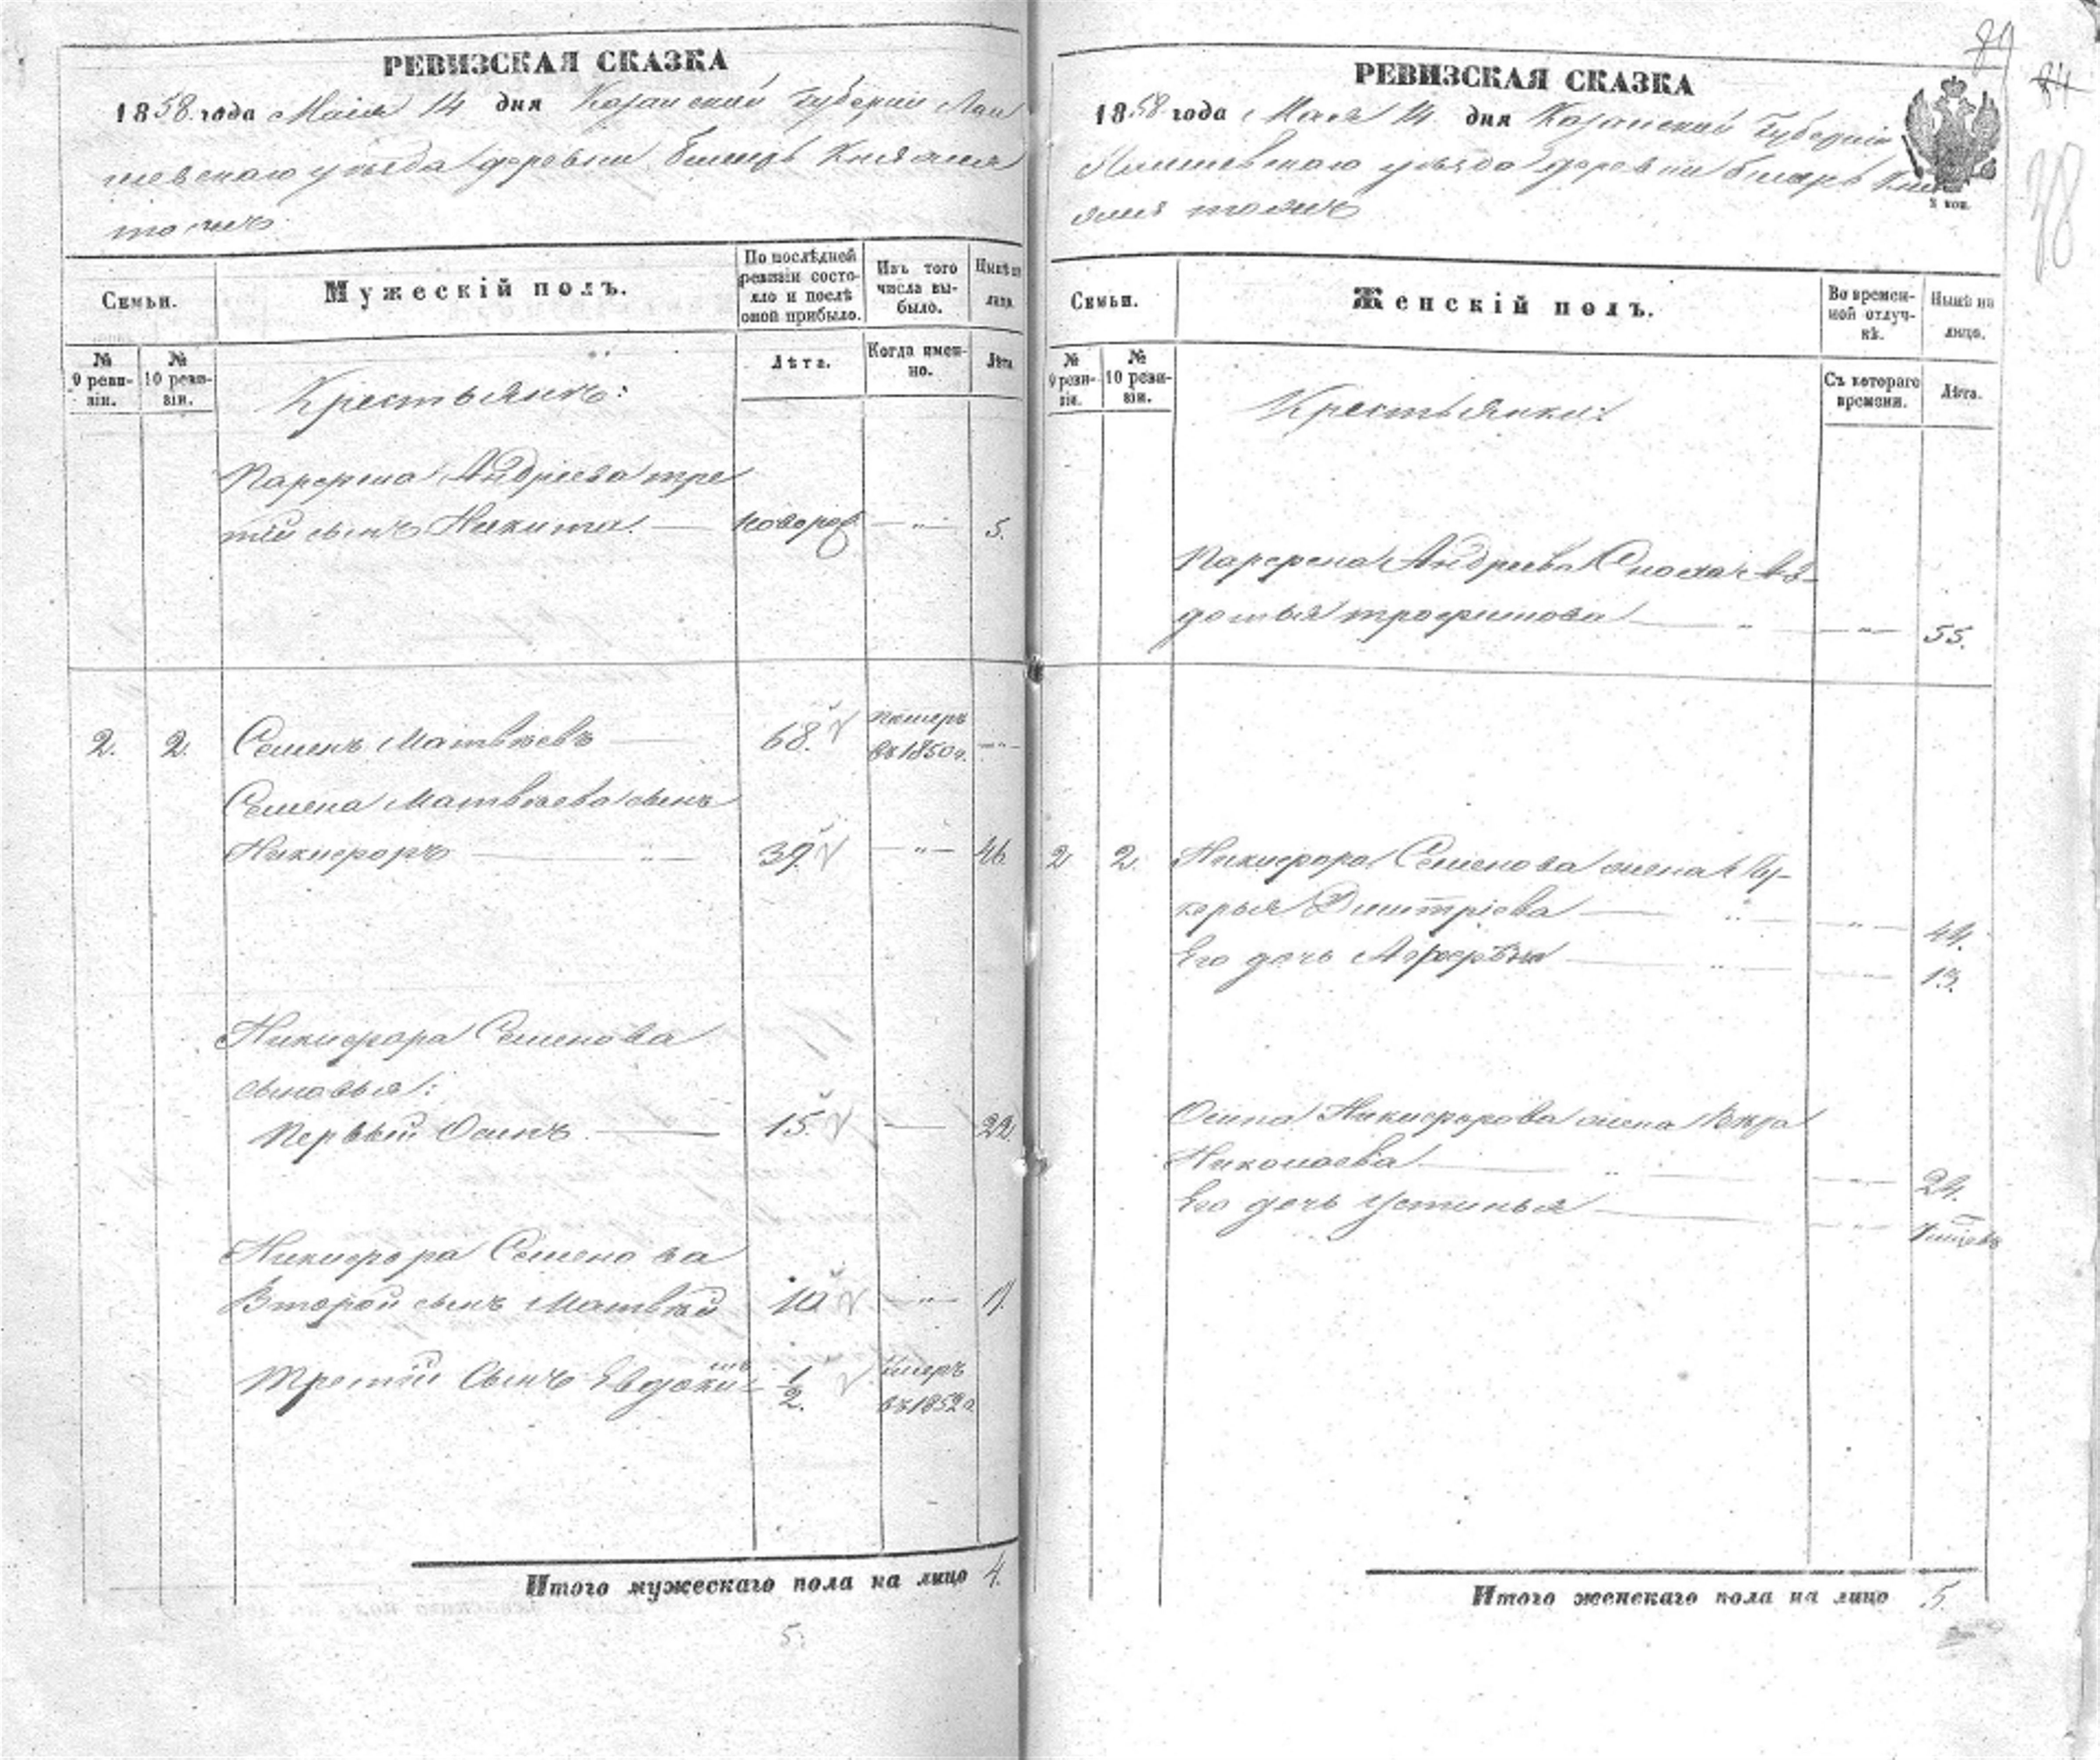 РЕВИЗСКАЯ СКАЗКА
1858 года Маія 14 дня Казанской Губерніи Лаи
шевскаго уѣзда деревни
Семьи.
Мужескій полъ.
По послѣдней ревизіи состояло и послѣ оной прибыло.
Изъ того числа выбыло.
Нынѣ на лицо.
№ 9 ревизіи.
№ 10 ревизіи.
Лѣта.
Когда именно.
Лѣта
Крестьянъ:
Парфена Андреева тре
тій сынъ Никита. — новорож. — „ — 5.
2. 2. Семенъ Матвѣевъ — 68. померъ въ 1850 г. — „ —
Семена Матвѣева сынъ
Никифоръ — „ — 39. — „ — 46
Никифора Семенова
сыновья:
Первый Осипъ. — 15. — 22.
Никифора Семенова
Второй сынъ Матвѣй 10 — „ — 17.
Третій Сынъ Евдокимъ 1/2. умеръ въ 1852 г.
Итого мужескаго пола на лицо 4.
5:
РЕВИЗСКАЯ СКАЗКА
1858 года Маія 14 дня Казанской Губерніи
Лаишевскаго уѣзда деревни
89
84
78
Семьи.
Женскій полъ.
Во временной отлучкѣ.
Нынѣ на лицо.
№ 9 ревизіи.
№ 10 ревизіи.
Съ котораго времени.
Лѣта.
Крестьянки:
Парфена Андреева Сноха Ав-
дотья трофимова — „ — „ — 55.
2 2. Никифора Семенова жена Лу-
керья Димитріева — „ — „ — 44.
Его дочь — „ — 13.
Осипа Никифорова жена Вѣра
Николаева — „ — „ — 24.
Его дочь Устинья — „ —
Итого женскаго пола на лицо 5.